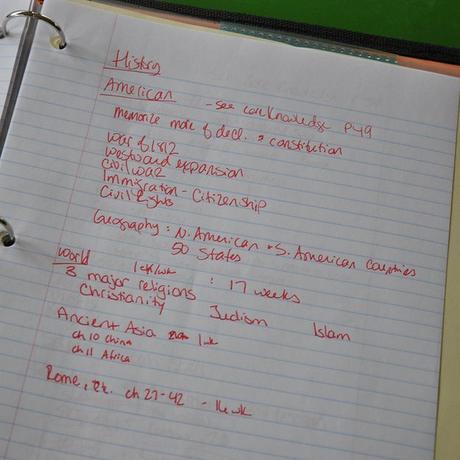 History
American - see core Knowledge p49
memorize more of decl. & constitution
War of 1812
westward expansion
civil war
Immigration - Citizenship
Civil Rights
Geography : N. American + S. American Countries
50 States
World 1 ch/wk : 17 weeks
3 major religions
Christianity Judism Islam
Ancient Asia 1wk
ch 10 China
ch 11 Africa
Rome, etc. ch 27-42 - 16 wk